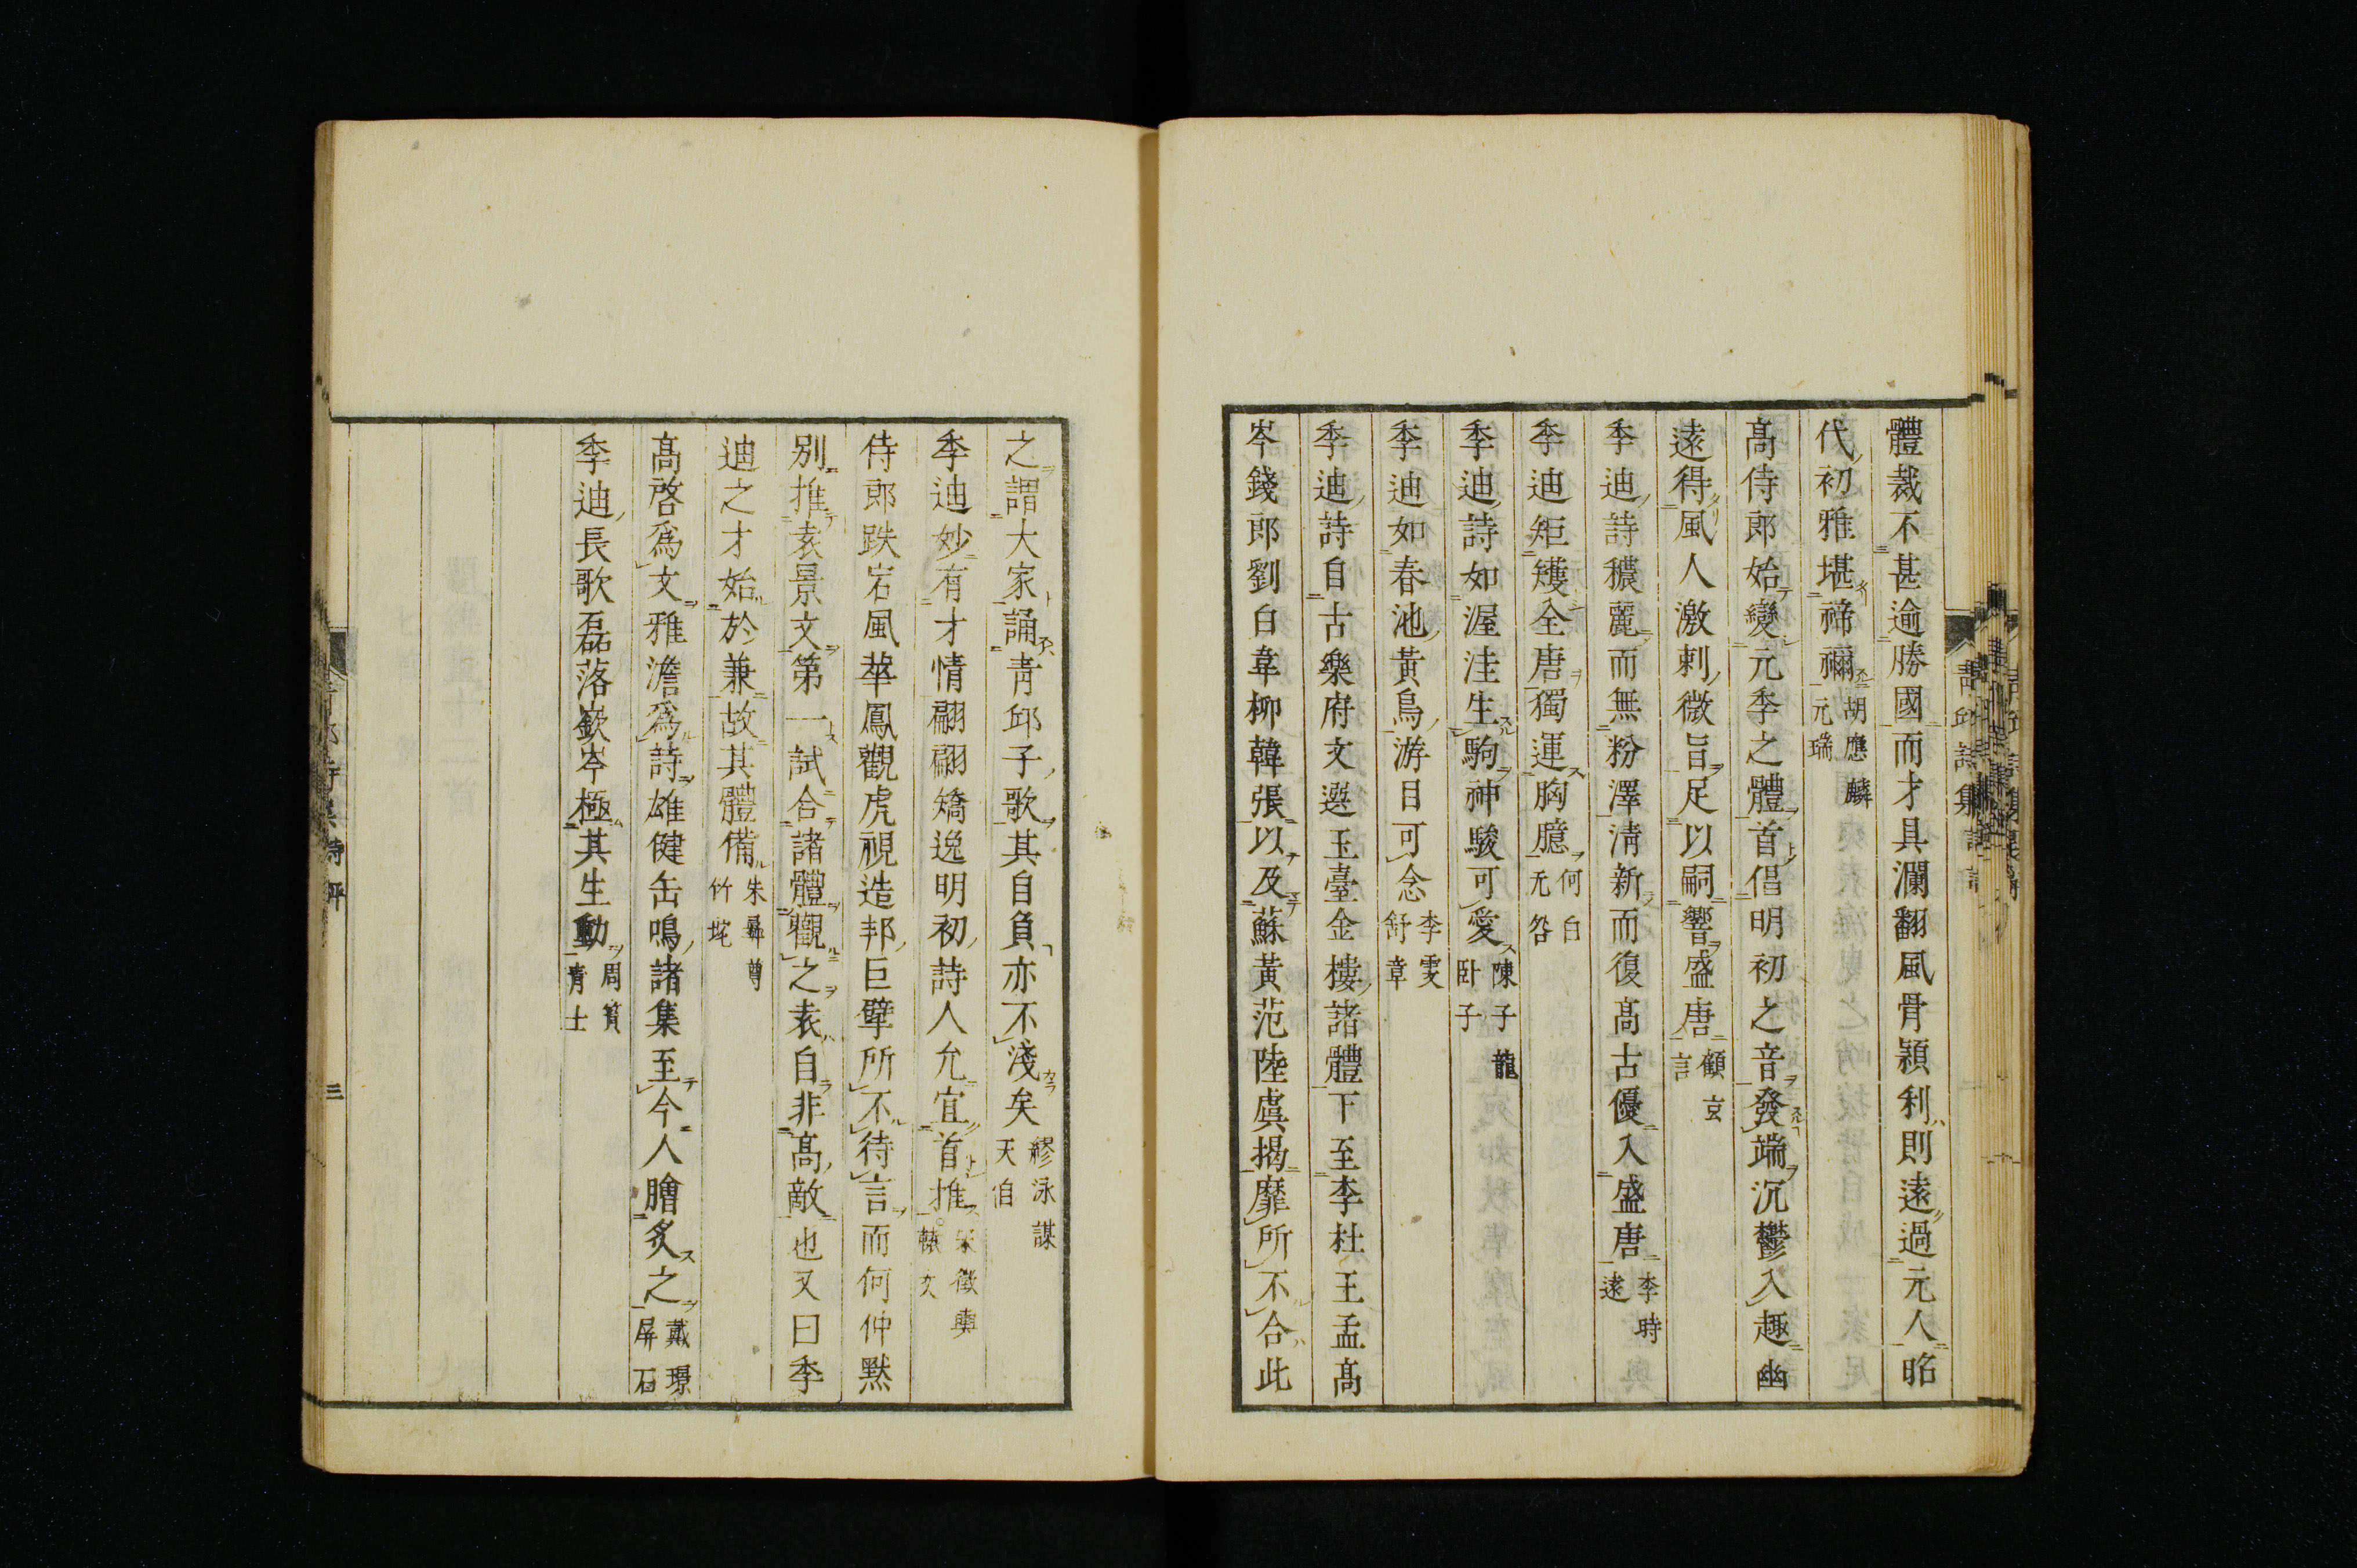 體裁不甚逾勝國而才具瀾翻風骨穎利則遠過元人昭
代初雅堪禘禰胡應麟元瑞
高侍郎始變元季之體首倡明初之音發端沉鬱入趣幽
遠得風人激刺微旨足以嗣響盛唐顧玄言
季迪詩穠麗而無粉澤清新而復高古優入盛唐李時遠
季迪矩矱全唐獨運胸臆何白无咎
季迪詩如渥洼生駒神駿可愛陳子龍臥子
季迪如春池黃鳥游目可念李雯舒章
季迪詩自古樂府文選玉臺金樓諸體下至李杜王孟高
岑錢郎劉白韋柳韓張以及蘇黃范陸虞揭靡所不合此
之謂大家誦青邱子歌其自負亦不淺矣繆泳謀天自
季迪妙有才情翩翩矯逸明初詩人允宜首推宋徵輿轅文
侍郎跌宕風華鳳觀虎視造邦巨擘所不待言而何仲默
別推袁景文第一試合諸體觀之袁自非高敵也又曰季
迪之才始於兼故其體備朱彝尊竹垞
高啓爲文雅澹爲詩雄健缶鳴諸集至今人膾炙之戴璟屏石
季迪長歌磊落嶔岑極其生動周篔青士
青邱詩集 詩評 三